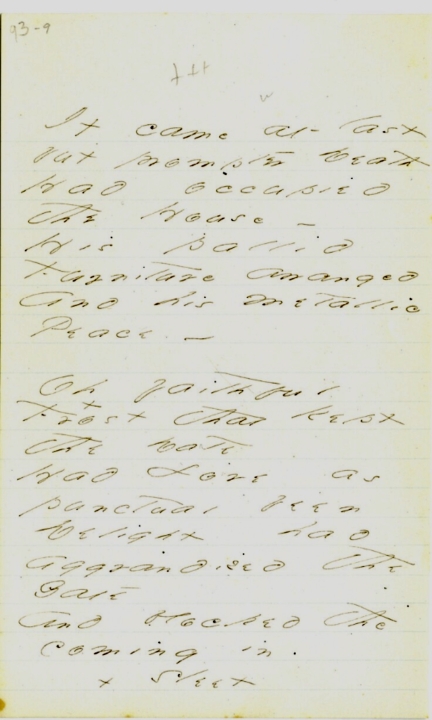 93-9
+++
It came at last
but prompter Death
Had occupied
the House –
His pallid
Furniture arranged
And his metallic
Peace –
Oh faithful
+ Frost that kept
the Date
Had Love as
punctual been
Delight had
aggrandized the
Gate
And blocked the
coming in.
+ Sleet